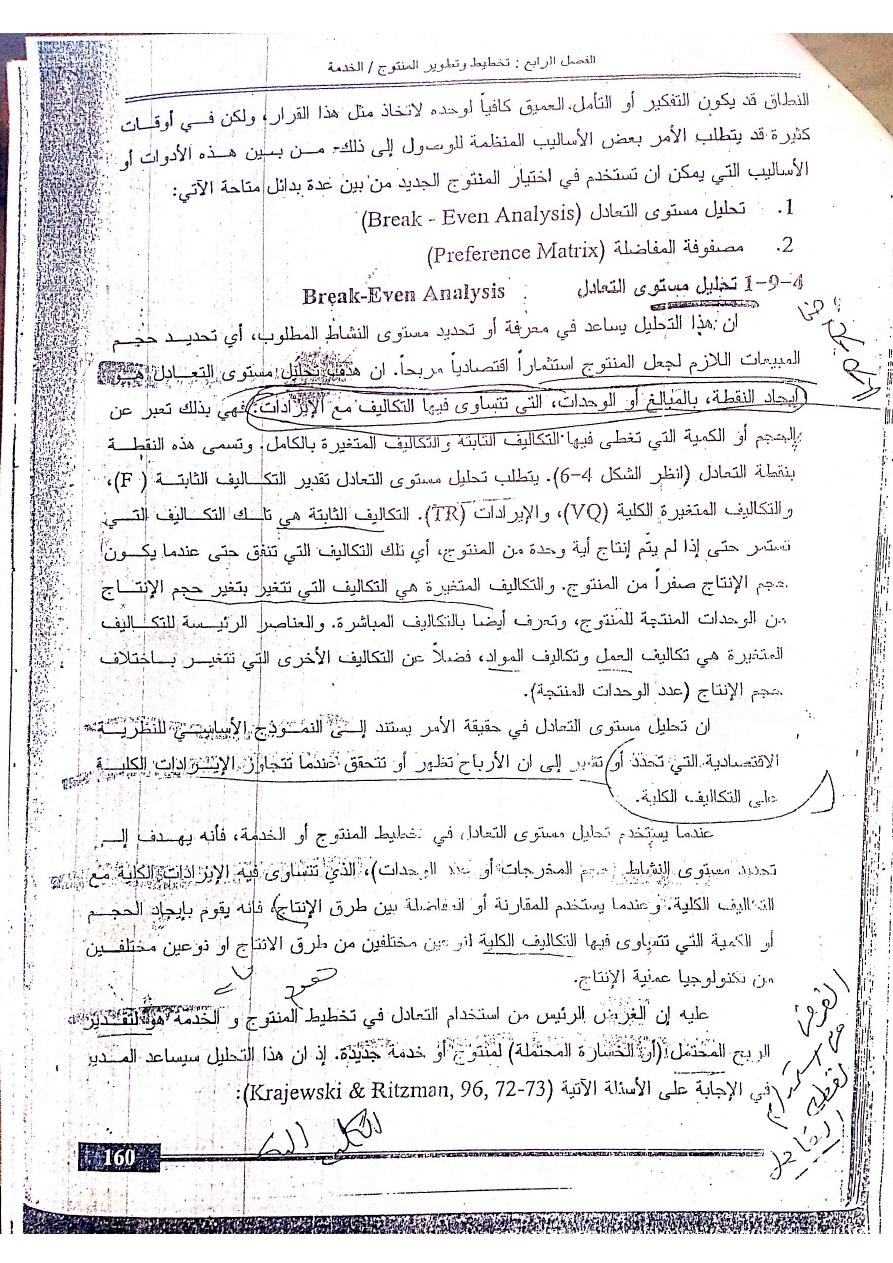 الفصل الرابع : تخطيط وتطوير المنتوج / الخدمة
النطاق قد يكون التفكير أو التأمل العميق كافياً لوحده لاتخاذ مثل هذا القرار، ولكن في أوقات
كثيرة قد يتطلب الأمر بعض الأساليب المنظمة للوصول إلى ذلك. من بين هذه الأدوات أو
الأساليب التي يمكن ان تستخدم في اختيار المنتوج الجديد من بين عدة بدائل متاحة الآتي:
1. تحليل مستوى التعادل (Break - Even Analysis)
2. مصفوفة المفاضلة (Preference Matrix)
4-9-1 تحليل مستوى التعادل : Break-Even Analysis
ان هذا التحليل يساعد في معرفة أو تحديد مستوى النشاط المطلوب، أي تحديد حجم
المبيعات اللازم لجعل المنتوج استثماراً اقتصادياً مربحاً. ان هدف تحليل مستوى التعادل هو
إيجاد النقطة، بالمبالغ أو الوحدات، التي تتساوى فيها التكاليف مع الإيرادات؛ فهي بذلك تعبر عن
الحجم أو الكمية التي تغطى فيها التكاليف الثابتة والتكاليف المتغيرة بالكامل. وتسمى هذه النقطة
بنقطة التعادل (انظر الشكل 4-6). يتطلب تحليل مستوى التعادل تقدير التكاليف الثابتة (F)،
والتكاليف المتغيرة الكلية (VQ)، والإيرادات (TR). التكاليف الثابتة هي تلك التكاليف التي
تستمر حتى إذا لم يتم إنتاج أية وحدة من المنتوج، أي تلك التكاليف التي تنفق حتى عندما يكون
حجم الإنتاج صفراً من المنتوج. والتكاليف المتغيرة هي التكاليف التي تتغير بتغير حجم الإنتاج
من الوحدات المنتجة للمنتوج، وتعرف أيضا بالتكاليف المباشرة. والعناصر الرئيسة للتكاليف
المتغيرة هي تكاليف العمل وتكاليف المواد، فضلاً عن التكاليف الأخرى التي تتغير باختلاف
حجم الإنتاج (عدد الوحدات المنتجة).
ان تحليل مستوى التعادل في حقيقة الأمر يستند إلى النموذج الأساسي للنظرية
الاقتصادية التي تحدد أو تشير إلى ان الأرباح تظهر أو تتحقق عندما تتجاوز الإيرادات الكلية
على التكاليف الكلية.
عندما يستخدم تحليل مستوى التعادل في تخطيط المنتوج أو الخدمة، فأنه يهدف إلى
تحديد مستوى النشاط (حجم المخرجات أو عدد الوحدات)، الذي تتساوى فيه الإيرادات الكلية مع
التكاليف الكلية. وعندما يستخدم للمقارنة أو المفاضلة بين طرق الإنتاج، فانه يقوم بإيجاد الحجم
أو الكمية التي تتساوى فيها التكاليف الكلية لنوعين مختلفين من طرق الانتاج او نوعين مختلفين
من تكنولوجيا عملية الإنتاج.
عليه إن الغرض الرئيس من استخدام التعادل في تخطيط المنتوج و الخدمة هو لتقدير
الربح المحتمل (أو الخسارة المحتملة) لمنتوج أو خدمة جديدة. إذ ان هذا التحليل سيساعد المدير
في الإجابة على الأسئلة الآتية (Krajewski & Ritzman, 96, 72-73):
160